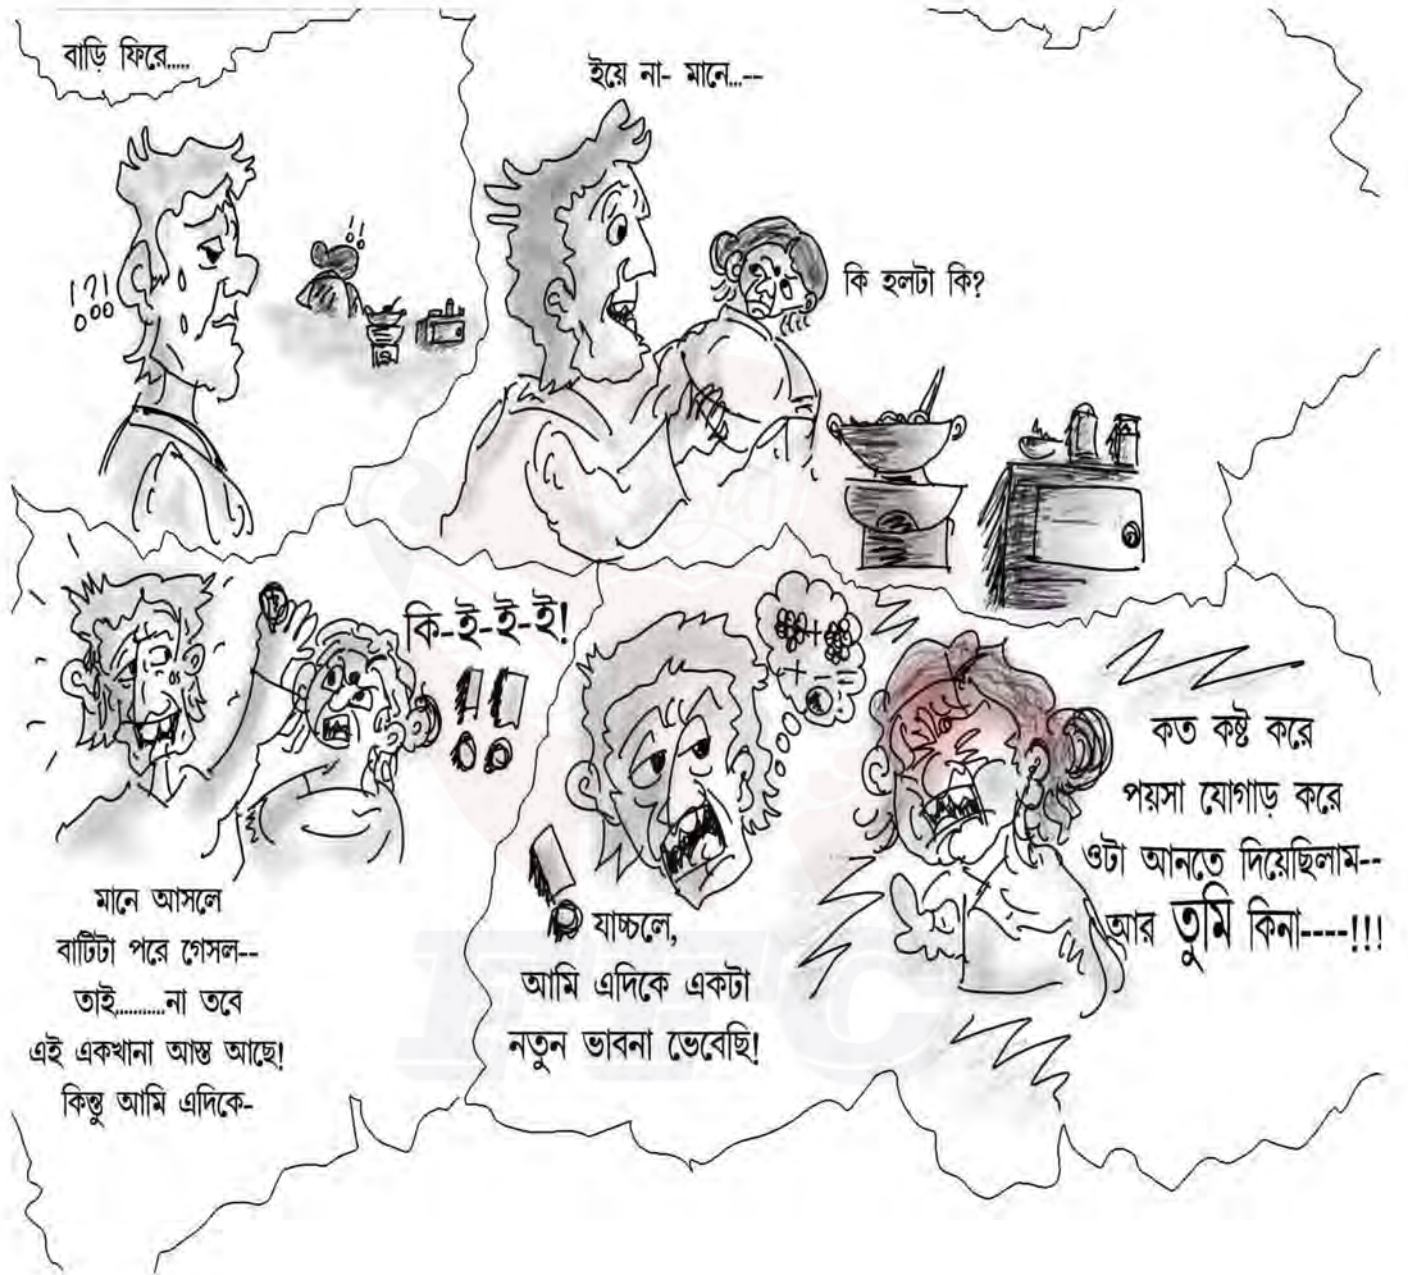 বাড়ি ফিরে.....
ইয়ে না- মানে...--
!?!
!!
কি হলটা কি?
কি-ই-ই-ই!
!!
মানে আসলে
বাটিটা পরে গেসল--
তাই...........না তবে
এই একখানা আস্ত আছে!
কিন্তু আমি এদিকে-
! যাচ্চলে,
আমি এদিকে একটা
নতুন ভাবনা ভেবেছি!
কত কষ্ট করে
পয়সা যোগাড় করে
ওটা আনতে দিয়েছিলাম--
আর তুমি কিনা----!!!
FFC